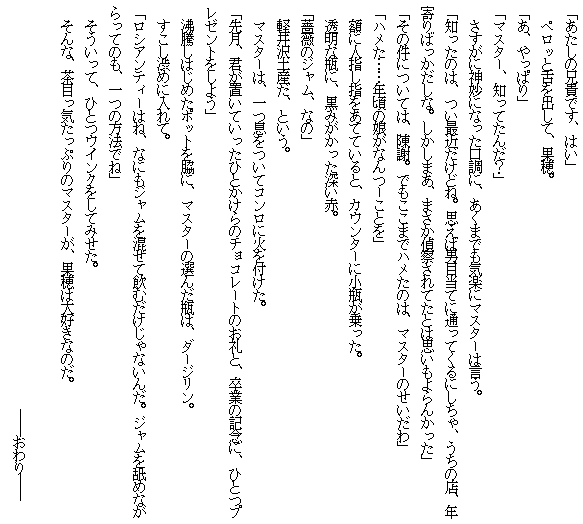 「あたしの兄貴です、はい」
　ペロッと舌を出して、果穂。
「あ、やっぱり」
「マスター、知ってたんだ？」
　さすがに神妙になった口調に、あくまでも気楽にマスターは言う。
「知ったのは、つい最近だけどね。思えば男目当てに通ってくるにしちゃ、うちの店、年
寄りばっかだしな。しかしまあ、まさか偵察されてたとは思いもよらんかった」
「その件については、陳謝。でもここまでハメたのは、マスターのせいだわ」
「ハメた……年頃の娘がなんつーことを」
　額に人指し指をあてていると、カウンターに小瓶が乗った。
　透明な瓶に、黒みがかった深い赤。
「薔薇のジャム、なの」
　軽井沢土産だ、という。
　マスターは、一つ息をついてコンロに火を付けた。
「先月、君が置いていったひとかけらのチョコレートのお礼と、卒業の記念に、ひとつプ
レゼントをしよう」
　沸騰しはじめたポットを脇に、マスターの選んだ瓶は、ダージリン。
　すこし濃めに入れて。
「ロシアンティーはね、なにもジャムを混ぜて飲むだけじゃないんだ。ジャムを舐めなが
らってのも、一つの方法でね」
　そういって、ひとつウインクをしてみせた。
　そんな、茶目っ気たっぷりのマスターが、果穂は大好きなのだ。
――おわり――